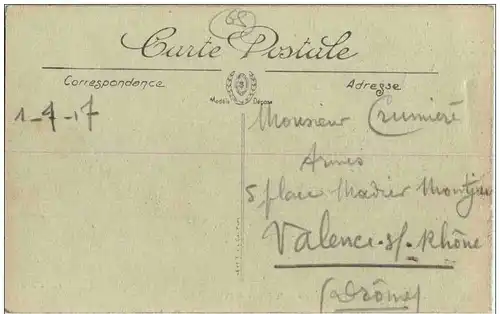 Carte Postale
Correspondance
Adresse
Modèle Déposé
1-4-17
Monsieur Crumieré
Armes
5 place Madier Montjau
Valence-s/-Rhône
(Drôme)